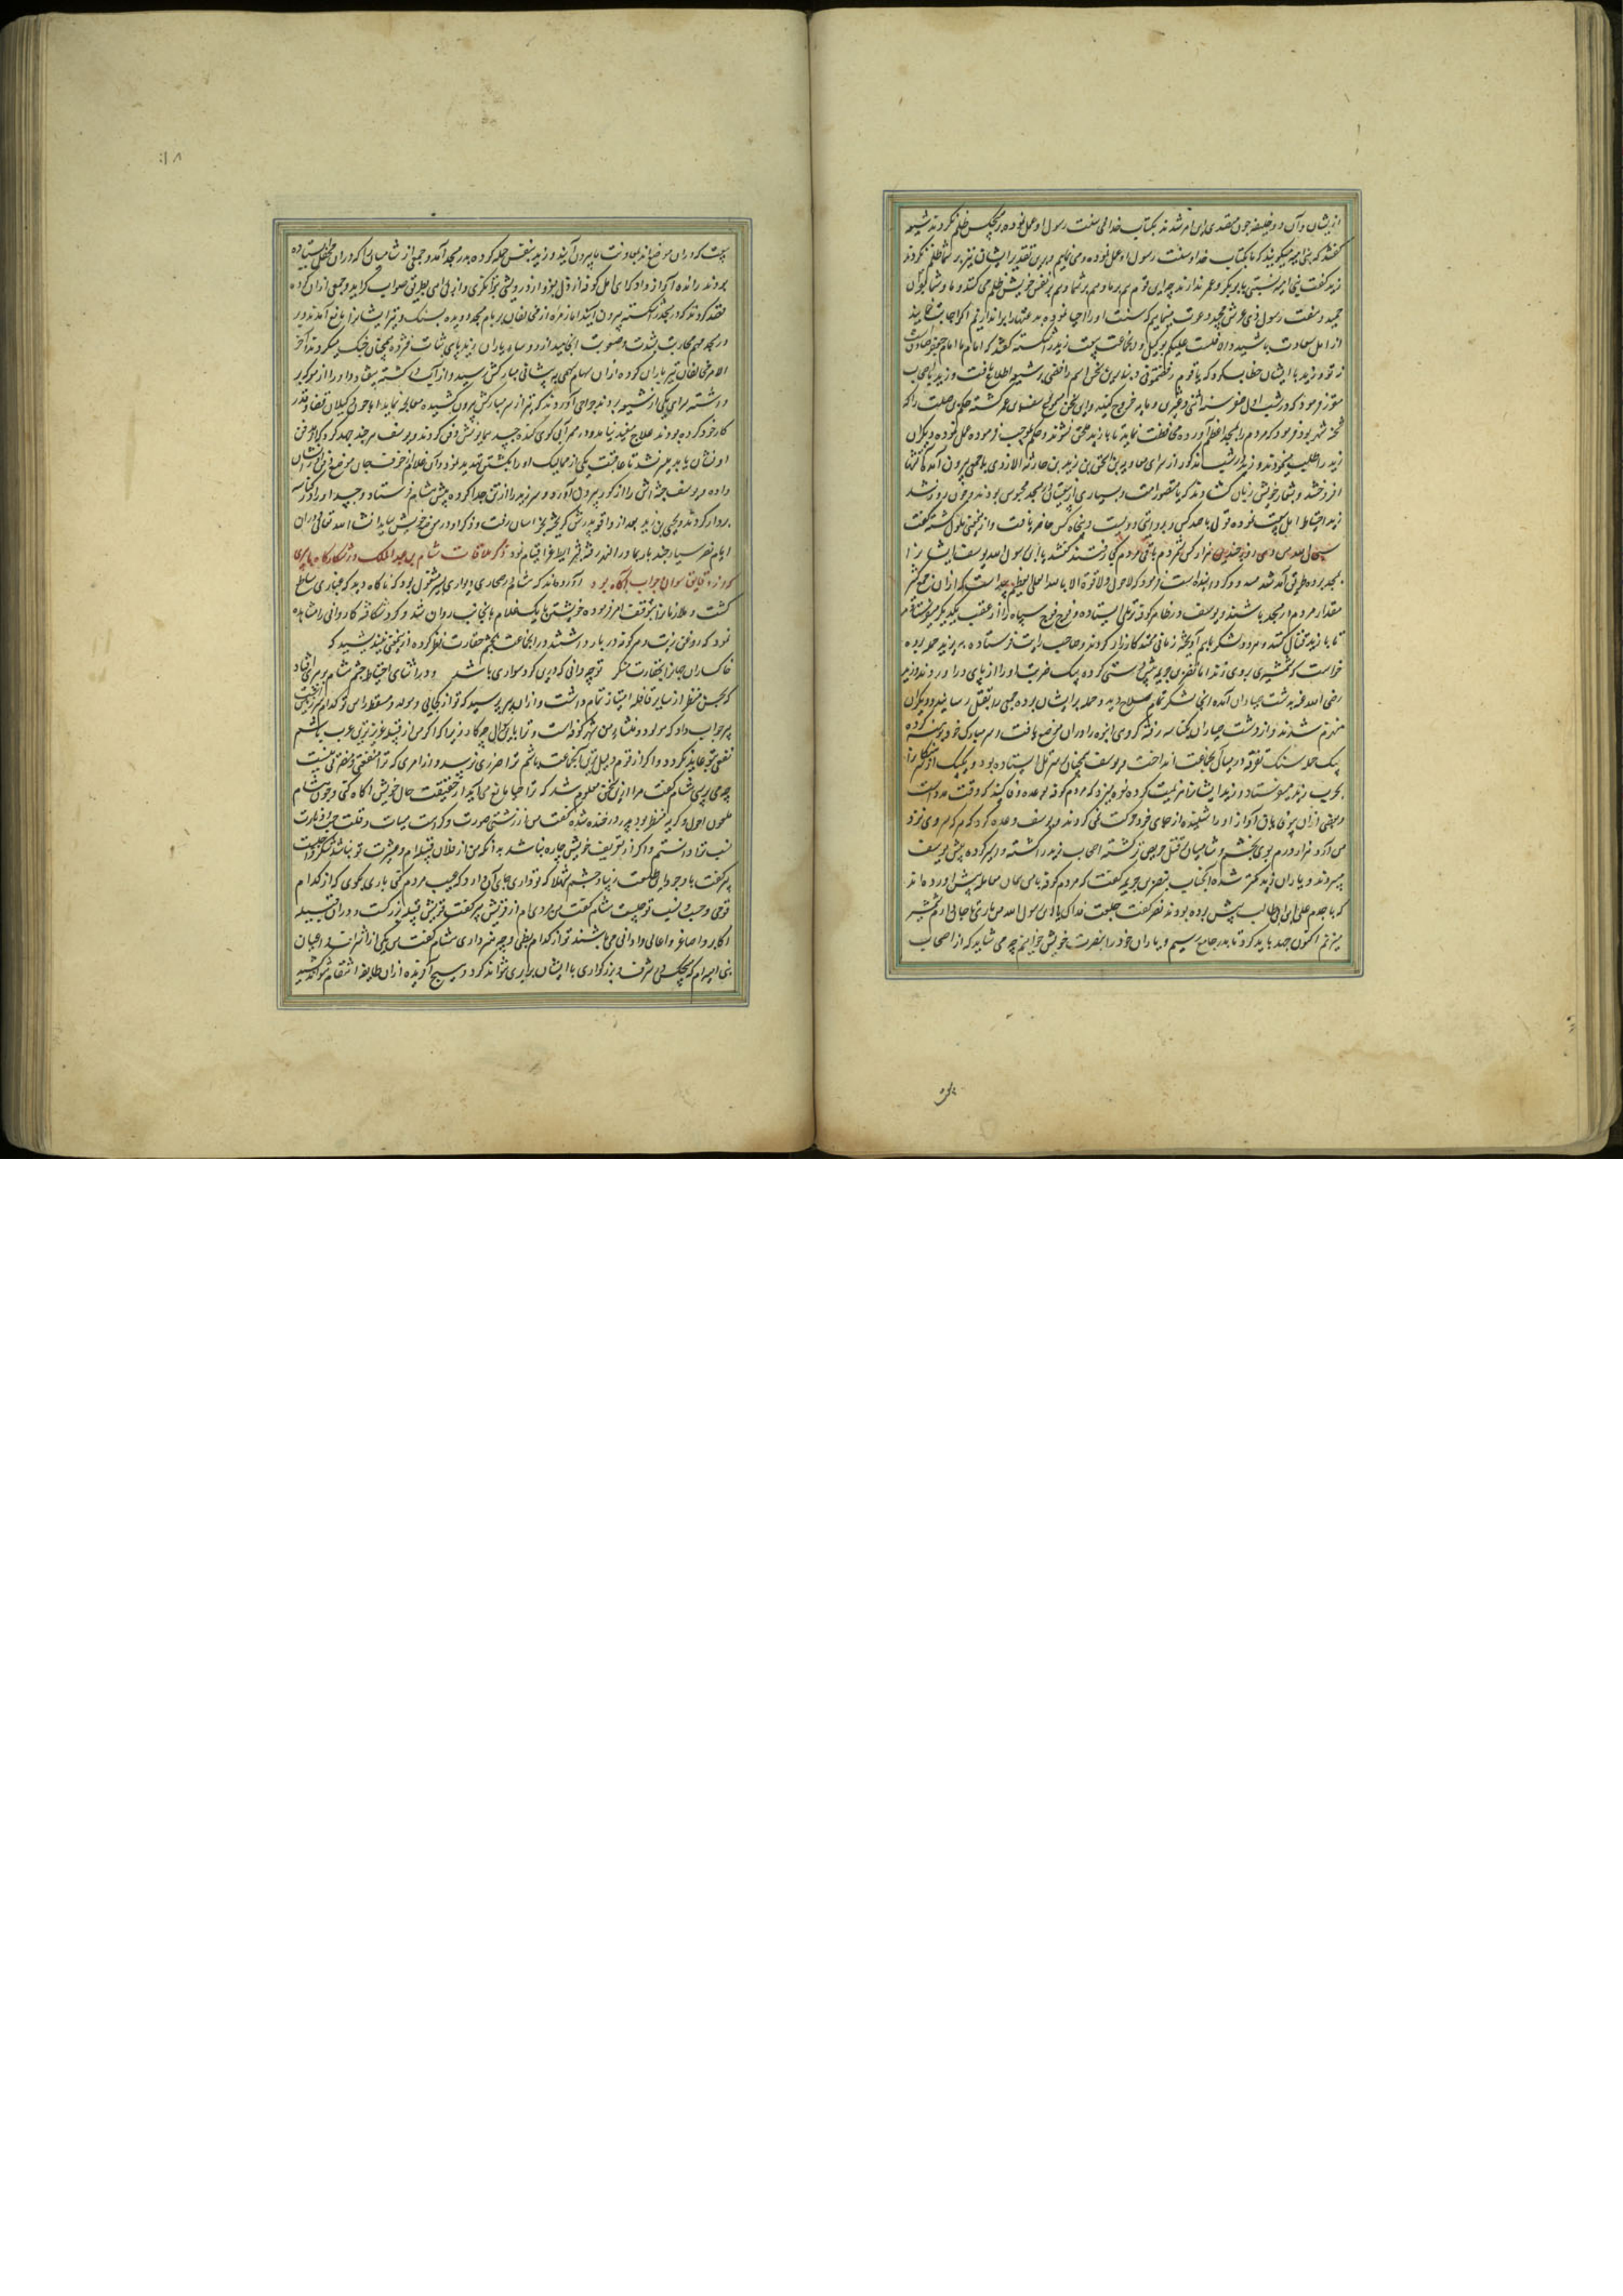 از ایشان و آن دو خلیفه چون متقدی این امر شدند بکتاب خدا و سنت رسول او عمل نموده بر هیچکس ظلم نکردند شیعه
گفتند که بنی امیه میگویند که ما بکتاب خدا و سنت رسول او عمل نموده و می نماییم و برین تقدیر ایشان نیز بر شما ظلم نکردند
زید گفت بنی امیه نسبتی بابوبکر و عمر ندارند چه این قوم هم بر ما و هم بر شما و هم بر نفس خویش ظلم می کنند و ما و شما بقرآن
مجید و سنت رسول ذی عرش مجید دعوت مینماییم که سنت او را احیا نموده بدعتها را براندازیم اگر اجابت نمایید
از اهل سعادت باشید و الا فلست علیکم بوکیل و آن جماعت بیعت زید را شکسته گفتند که امام ما امام جعفر صادقست
نه تو و زید با ایشان خطاب کرد که یا قوم رفضتمونی و بنابرین سخن اسم رافضی بر شیعه اطلاق یافت و زید باصحاب
مقرر فرمود که در شب اول صفر سنه اثنی و عشرین و مایه خروج کنند و این سخن بسمع یوسف بن عمر گشته حکم بن صلت را که
شحنه شهر بود فرمود که مردم را بمسجد اعظم آورده محافظت نماید تا بازید ملحق نشوند و حکم بموجب فرموده عمل نموده دیگران
زید را طلب نمودند و زید در شب مذکور از سرای معاویه بن اسحق بن زید بن حارثه الازدی با جمعی بیرون آمد تا آتشها
افروختند و بشعار خویش زبان گشادند که یا منصور امت و بسیاری از شیعیان در مسجد محبوس بودند و چون روز شد
زید احتیاط اهل بیعت نموده قولی پانصد کس و بروایتی دویست و پنجاه کس حاضر یافت و ازین معنی ملول گشته گفت
سبحان الله
بمسجد برده طریق آمد شد مسدود کرده اند زید فرمود که لا حول و لا قوة الا بالله العلی العظیم
مقدار مردم در مسجد باشند و یوسف در ظاهر کوفه بر تلی ایستاده و فوج فوج سپاه را از عقب یکدیگر میفرستاد
تا با زید قتال کنند و هر دو لشکر باهم آویخته زمانی ممتد کارزار کردند و صاحب رایت فرستاده بر زید حمله برده
خواست که شمشیری بر وی زند اما نصر بن خزیمه پیش دستی کرده بیک ضربت او را از پای درآورد و بعد از آن زید
رضی الله عنه بدشت جباران آمده
منهزم شدند و از دشت جباران بکناسه رفته گروهی انبوه را در آن موضع یافت و سر مبارک خود برهنه کرده
بیک حمله سنک تفرقه در میان آن جماعت انداخت و یوسف همچنان بر سر تل ایستاده بود و یک یک از لشکر را
بحرب زید میفرستاد و زید ایشانرا هزیمت کرده نعره میزد که مردم کوفه بوعده وفا کنید که وقت مدد است
و بعضی از آن بی وفایان آواز او را شنیده از جای خود حرکت نمی کردند و یوسف وعده کرد که هر که سر وی نزد
من آرد هزار درم بوی بخشم و شامیان بر قتل حریص تر گشته اصحاب زید را کشته و اسیر کرده پیش یوسف
میبردند و یاران زید کمتر شده آنجناب بنصر بن خزیمه گفت که مردم کوفه با من همان معامله پیش آورده اند
که با جدم علی ابن ابی طالب پیش برده بودند نصر گفت جعلت فداک یا ابن رسول الله من باری تا جان دارم شمشیر
میزنم اکنون جهد باید کرد تا بدر جامع رسیم و یاران خود را بنصرت خویش خوانیم چه می شاید که از اصحاب
بیعت
۱۸
بیعت که در آن موضع اند بمعاونت ما بیرون آیند و زید بنفس حمله کرده بدر مسجد آمد و جمعی از شامیان را که در آن محل ایستاده
بودند رانده آواز داد که ای اهل کوفه از ذل بعز و از درویشی بتوانگری و از بی راهی بطریق صواب گرایید و جمعی از آن گروه
قصد کردند که در مسجد را شکسته بیرون آیند اما زمره از مخالفان بر بام مسجد دویده بسنک و تیر ایشانرا مانع آمدند و بر
در مسجد مهم محاربت بشدت و صعوبت انجامید از دو ساه یاران زید پای ثبات فشرده همچنان جنگ میکردند آخر
الامر مخالفان تیر باران کرده از آن سهام سهمی به پیشانی مبارکش رسید و از آن کشته بیفتاد و او را از معرکه بر
داشته بسرای یکی از شیعه بردند جراحی آوردند که تیر از سر مبارکش بیرون کشیده معالجه نماید اما چون وکیلان قضا و قدر
کار خود کرده بودند علاج مفید نیامد و در ممر آبی گوری کنده جسد همایونش دفن کردند و یوسف هر چند جهد کرد که از مدفن
او نشان یابد میسر نشد تا عاقبت یکی از ممالیک او را بکشتن تهدید نمود و آن غلام از خوف جان موضع قبر را نشان
داده و یوسف جثه اش را از گور بیرون آورده و سر زید را از تن جدا کرده پیش هشام فرستاد و جسد او را در کناسه
بردار کردند و یحیی بن زید بعد از واقعه پدرش گریخته بخراسان رفت و ذکر او در موضع خویش بیاید انشا الله تعالی و در آن
ایام نصر سیار چند بار بماوراء النهر رفته بشرایط غزا قیام نمود ذکر ملاقات هشام بن عبدالملک در شکارگاه با پسری
که از دقایق سوال و جواب آگاه بود آورده اند که هشام در صحاری و براری بسیر مشغول بود که ناگاه دید که غباری ساطع
گشت و ملازمانرا بتوقف امر فرموده خویشتن با یک غلام بآنجانب روان شد و گرد شکافته کاروانی را مشاهده
نمود که روغن زیت و مردم کوفه در بار داشتند و در آن جماعت بچشم حقارت نظر کرده ازین معنی نیندیشید که
خاکساران جهانرا بحقارت منگر تو چه دانی که درین گرد سواری باشد و در اثنای احتیاط چشم هشام بر پسری افتاد
که بحسن منظر از سایر قافله امتیاز تمام داشت و از آن پسر پرسید که تو از کجایی و مولد و مسقط راس تو کدام سرزمینست
پسر جواب داد که مولد و منشاء من شهر کوفه است و ترا باین سوال چه کار زیرا که اگر من از قبیله عزیزترین عرب باشم
نفعی بتو عاید نگردد و اگر از قوم ذلیل ترین آنجماعت باشم ترا ضرری نرسد و از امری که ترا منفعتی و مضرتی نیست
چه می پرسی هشام گفت مرا ازین سخن معلوم شد که ترا حیا مانع می آید که از حقیقت حال خویش آگاه کنی و چون هشام
ملعون احول و کریه منظر بود پسر در خنده شده گفت من از زشتی صورت و کراهت هیات و قلت حیا و
نسب ترا دانستم و اگر از تعریف خویش چاره نباشد بدانکه من از فلان قبیله ام و عشیرت تو بنا شد
پسر گفت با وجود این طلعت زیبا و چشم شهلا که تو داری جای آن دارد که عیب مردم کنی باری بگوی که از کدام
قومی و حسب و نسب تو چیست هشام گفت من مردی ام از قریش پسر گفت قریش قبیله بزرگست و در آن قبیله
اکابر و اصاغر و اعالی و ادانی می باشند تو از کدام بطنی و چه هنر داری هشام گفت من یکی از اشراف و اعیان
بنی امیه ام که هیچکس در شرف و بزرگواری با ایشان برابری نتواند کرد و هیچ آفریده از آن طایفه انتقام نتواند کشید